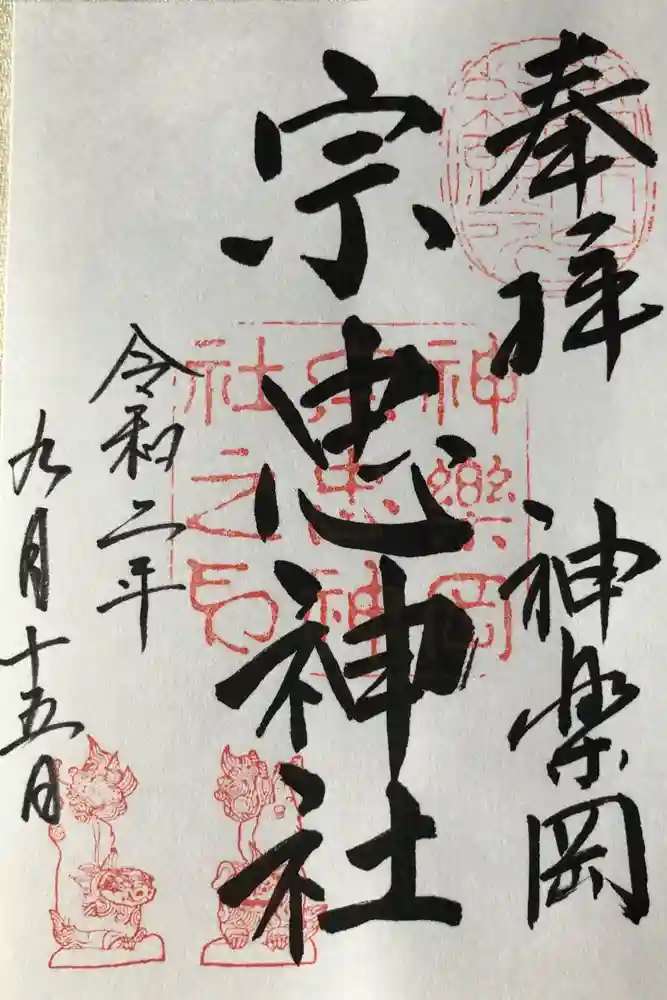 奉拝
神楽岡
宗忠神社
神樂岡
宗忠神
社之印
令和二年
九月十五日